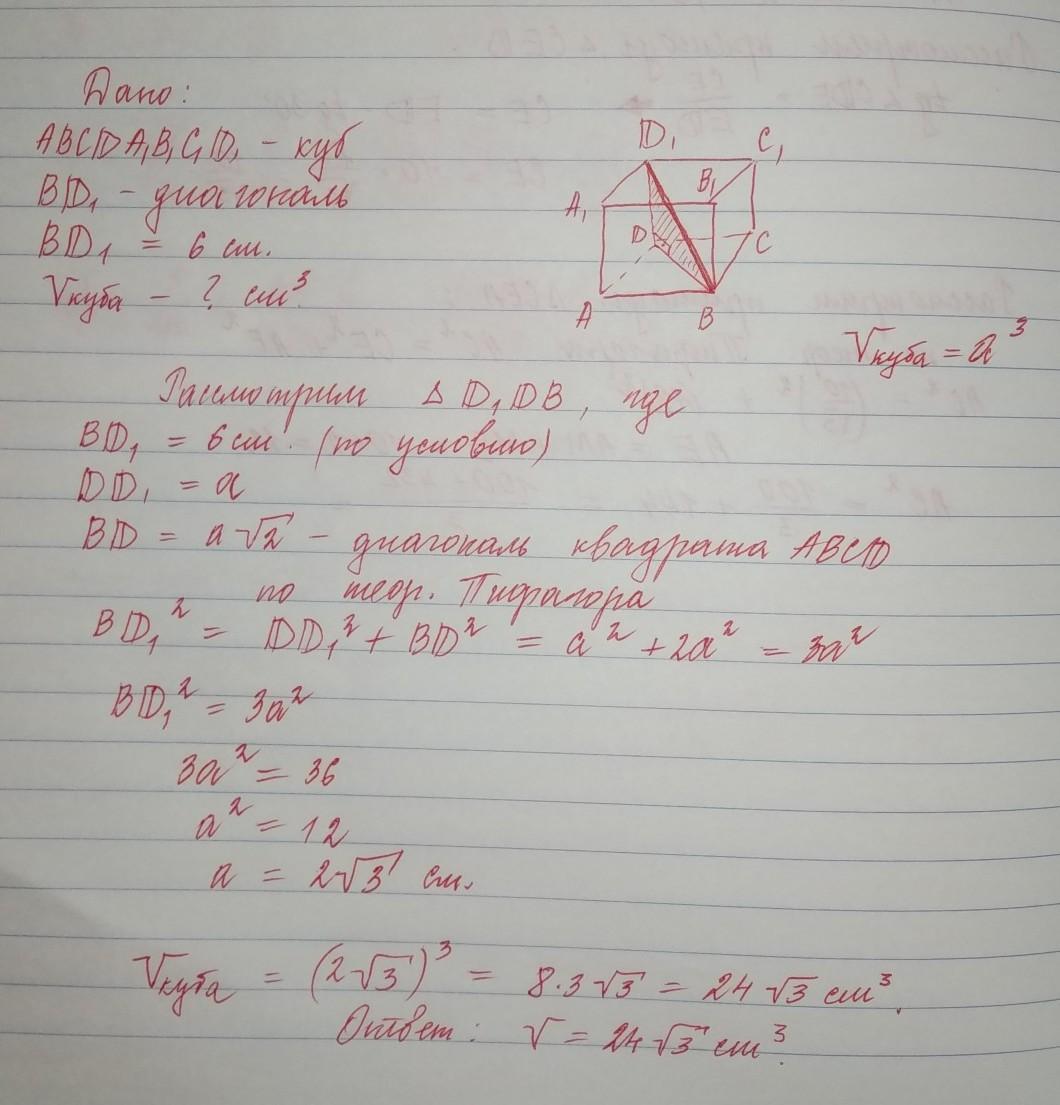 Дано:
ABCDA₁B₁C₁D₁ – куб
BD₁ – диагональ
BD₁ = 6 см.
Vкуба – ? см³.
D₁ C₁
A₁ B₁
D C
A B
Vкуба = a³
Рассмотрим Δ D₁DB, где
BD₁ = 6 см. (по условию)
DD₁ = a
BD = a√2 – диагональ квадрата ABCD
по теор. Пифагора
BD₁² = DD₁² + BD² = a² + 2a² = 3a²
BD₁² = 3a²
3a² = 36
a² = 12
a = 2√3 см.
Vкуба = (2√3)³ = 8·3√3 = 24√3 см³.
Ответ: V = 24√3 см³.